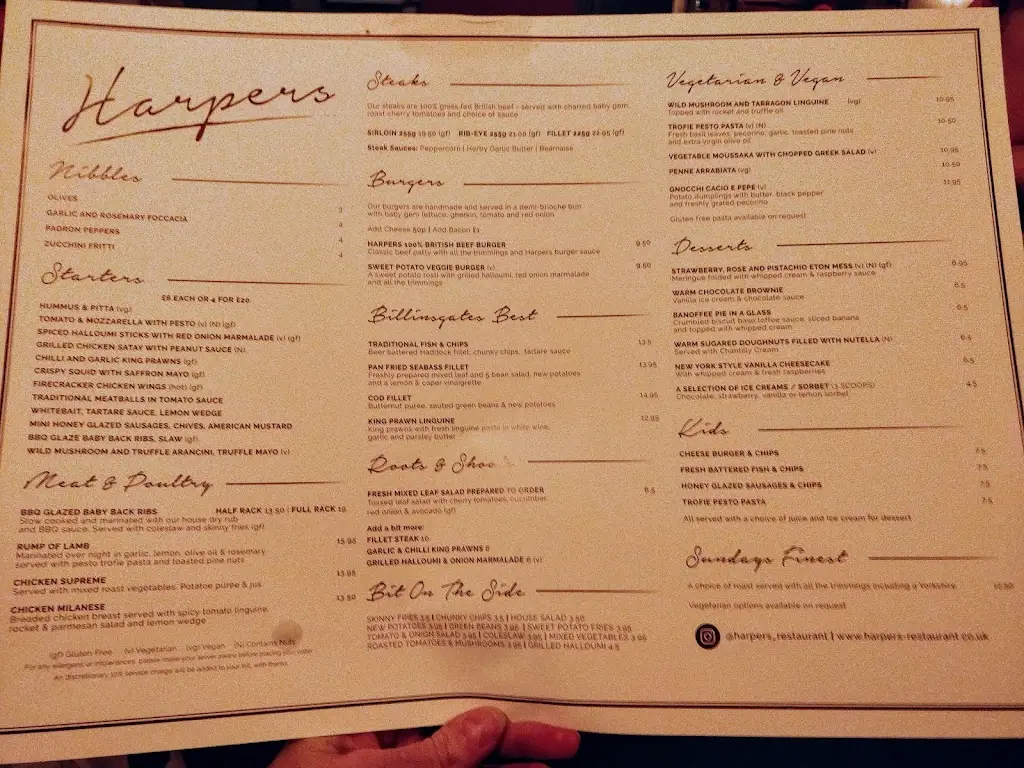 Harpers
Nibbles
OLIVES 3
GARLIC AND ROSEMARY FOCCACIA 4
PADRON PEPPERS 4
ZUCCHINI FRITTI 4
Starters
£6 EACH OR 4 FOR £20
HUMMUS & PITTA (vg)
TOMATO & MOZZARELLA WITH PESTO (v) (N) (gf)
SPICED HALLOUMI STICKS WITH RED ONION MARMALADE (v) (gf)
GRILLED CHICKEN SATAY WITH PEANUT SAUCE (N)
CHILLI AND GARLIC KING PRAWNS (gf)
CRISPY SQUID WITH SAFFRON MAYO (gf)
FIRECRACKER CHICKEN WINGS (hot) (gf)
TRADITIONAL MEATBALLS IN TOMATO SAUCE
WHITEBAIT, TARTARE SAUCE, LEMON WEDGE
MINI HONEY GLAZED SAUSAGES, CHIVES, AMERICAN MUSTARD
BBQ GLAZE BABY BACK RIBS, SLAW (gf)
WILD MUSHROOM AND TRUFFLE ARANCINI, TRUFFLE MAYO (v)
Meat & Poultry
BBQ GLAZED BABY BACK RIBS HALF RACK 13.50 | FULL RACK 18
Slow cooked and marinated with our house dry rub
and BBQ sauce. Served with coleslaw and skinny fries (gf)
RUMP OF LAMB 15.95
Marinated over night in garlic, lemon, olive oil & rosemary
served with pesto trofie pasta and toasted pine nuts
CHICKEN SUPREME 13.95
Served with mixed roast vegetables, Potatoe puree & jus
CHICKEN MILANESE 13.50
Breaded chicken breast served with spicy tomato linguine,
rocket & parmesan salad and lemon wedge
(gf) Gluten Free (v) Vegetarian (vg) Vegan (N) Contains Nuts
For any allergens or intolerances, please make your server aware before placing your order
An discretionary, 10% service charge will be added to your bill, with thanks
Steaks
Our steaks are 100% grass fed British beef - served with charred baby gem,
roast cherry tomatoes and choice of sauce
SIRLOIN 255g 19.50 (gf) RIB-EYE 255g 21.00 (gf) FILLET 225g 22.95 (gf)
Steak Sauces: Peppercorn | Herby Garlic Butter | Bearnaise
Burgers
Our burgers are handmade and served in a demi-brioche bun
with baby gem lettuce, gherkin, tomato and red onion
Add Cheese 50p | Add Bacon £1
HARPERS 100% BRITISH BEEF BURGER 9.50
Classic beef patty with all the trimmings and Harpers burger sauce
SWEET POTATO VEGGIE BURGER (v) 9.50
A sweet potato rosti with grilled halloumi, red onion marmalade
and all the trimmings
Billinsgates Best
TRADITIONAL FISH & CHIPS 13.5
Beer battered Haddock fillet, chunky chips, tartare sauce
PAN FRIED SEABASS FILLET 13.95
Freshly prepared mixed leaf and 5 bean salad, new potatoes
and a lemon & caper vinaigrette
COD FILLET 14.95
Butternut puree, sauted green beans & new potatoes
KING PRAWN LINGUINE 12.95
King prawns with fresh linguine pasta in white wine,
garlic and parsley butter
Roots & Shoots
FRESH MIXED LEAF SALAD PREPARED TO ORDER 8.5
Tossed leaf salad with cherry tomatoes, cucumber,
red onion & avocado (gf)
Add a bit more:
FILLET STEAK 10
GARLIC & CHILLI KING PRAWNS 6
GRILLED HALLOUMI & ONION MARMALADE 6 (v)
Bit On The Side
SKINNY FRIES 3.5 | CHUNKY CHIPS 3.5 | HOUSE SALAD 3.50
NEW POTATOES 3.95 | GREEN BEANS 3.95 | SWEET POTATO FRIES 3.95
TOMATO & ONION SALAD 3.95 | COLESLAW 3.95 | MIXED VEGETABLES 3.95
ROASTED TOMATOES & MUSHROOMS 3.95 | GRILLED HALLOUMI 4.5
Vegetarian & Vegan
WILD MUSHROOM AND TARRAGON LINGUINE (vg) 10.95
Topped with rocket and truffle oil
TROFIE PESTO PASTA (v) (N) 10.50
Fresh basil leaves, pecorino, garlic, toasted pine nuts
and extra virgin olive oil
VEGETABLE MOUSSAKA WITH CHOPPED GREEK SALAD (v) 10.95
PENNE ARRABIATA (vg) 10.50
GNOCCHI CACIO E PEPE (v) 11.95
Potato dumplings with butter, black pepper
and freshly grated pecorino
Gluten free pasta available on request
Desserts
STRAWBERRY, ROSE AND PISTACHIO ETON MESS (v) (N) (gf) 6.95
Meringue folded with whipped cream & raspberry sauce
WARM CHOCOLATE BROWNIE 6.5
Vanilla ice cream & chocolate sauce
BANOFFEE PIE IN A GLASS 6.5
Crumbled biscuit base, toffee sauce, sliced banana
and topped with whipped cream
WARM SUGARED DOUGHNUTS FILLED WITH NUTELLA (N) 6.5
Served with Chantilly Cream
NEW YORK STYLE VANILLA CHEESECAKE 6.5
With whipped cream & fresh raspberries
A SELECTION OF ICE CREAMS // SORBET (3 SCOOPS) 4.5
Chocolate, strawberry, vanilla or lemon sorbet
Kids
CHEESE BURGER & CHIPS 7.5
FRESH BATTERED FISH & CHIPS 7.5
HONEY GLAZED SAUSAGES & CHIPS 7.5
TROFIE PESTO PASTA 7.5
All served with a choice of juice and ice cream for dessert
Sundays Finest
A choice of roast served with all the trimmings including a Yorkshire.
Vegetarian options available on request
@harpers_restaurant | www.harpers-restaurant.co.uk